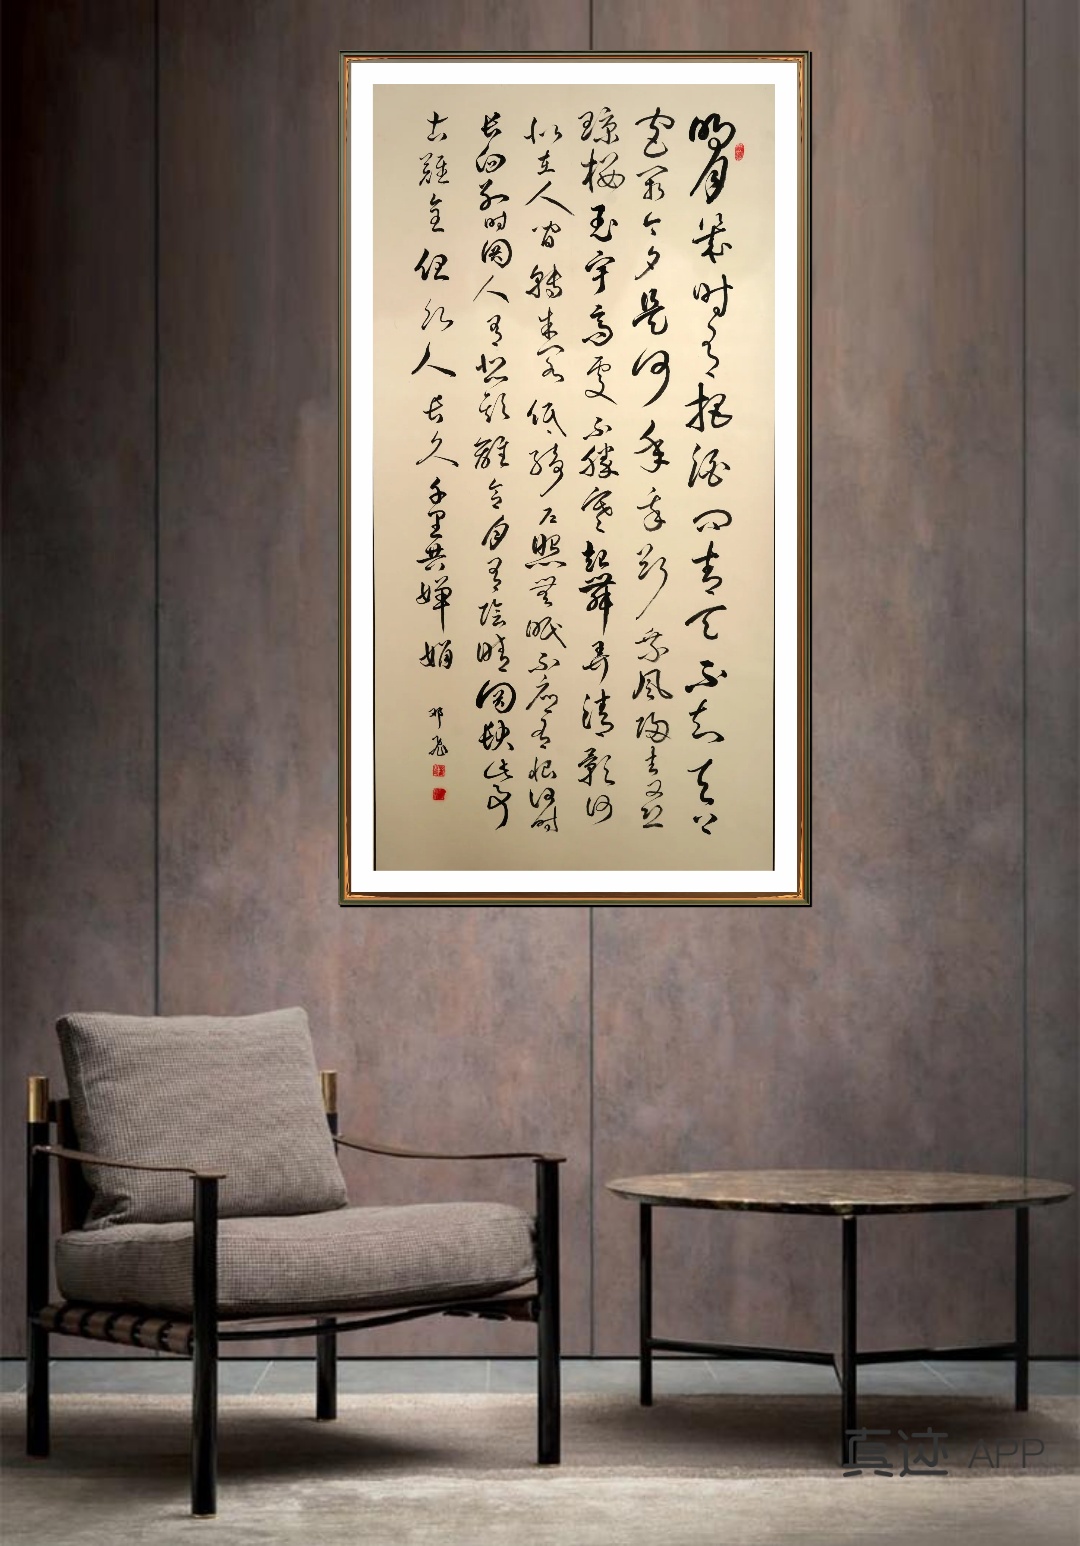 明月幾时有把酒问青天不知天上
宫阙今夕是何年我欲乘风归去又恐
琼楼玉宇高处不勝寒起舞弄清影何
似在人间轉朱阁低绮户照無眠不应有恨何时
长向别时圆人有悲歡離合月有陰晴圆缺此事
古難全但願人长久千里共嬋娟
邓飞
真迹 APP